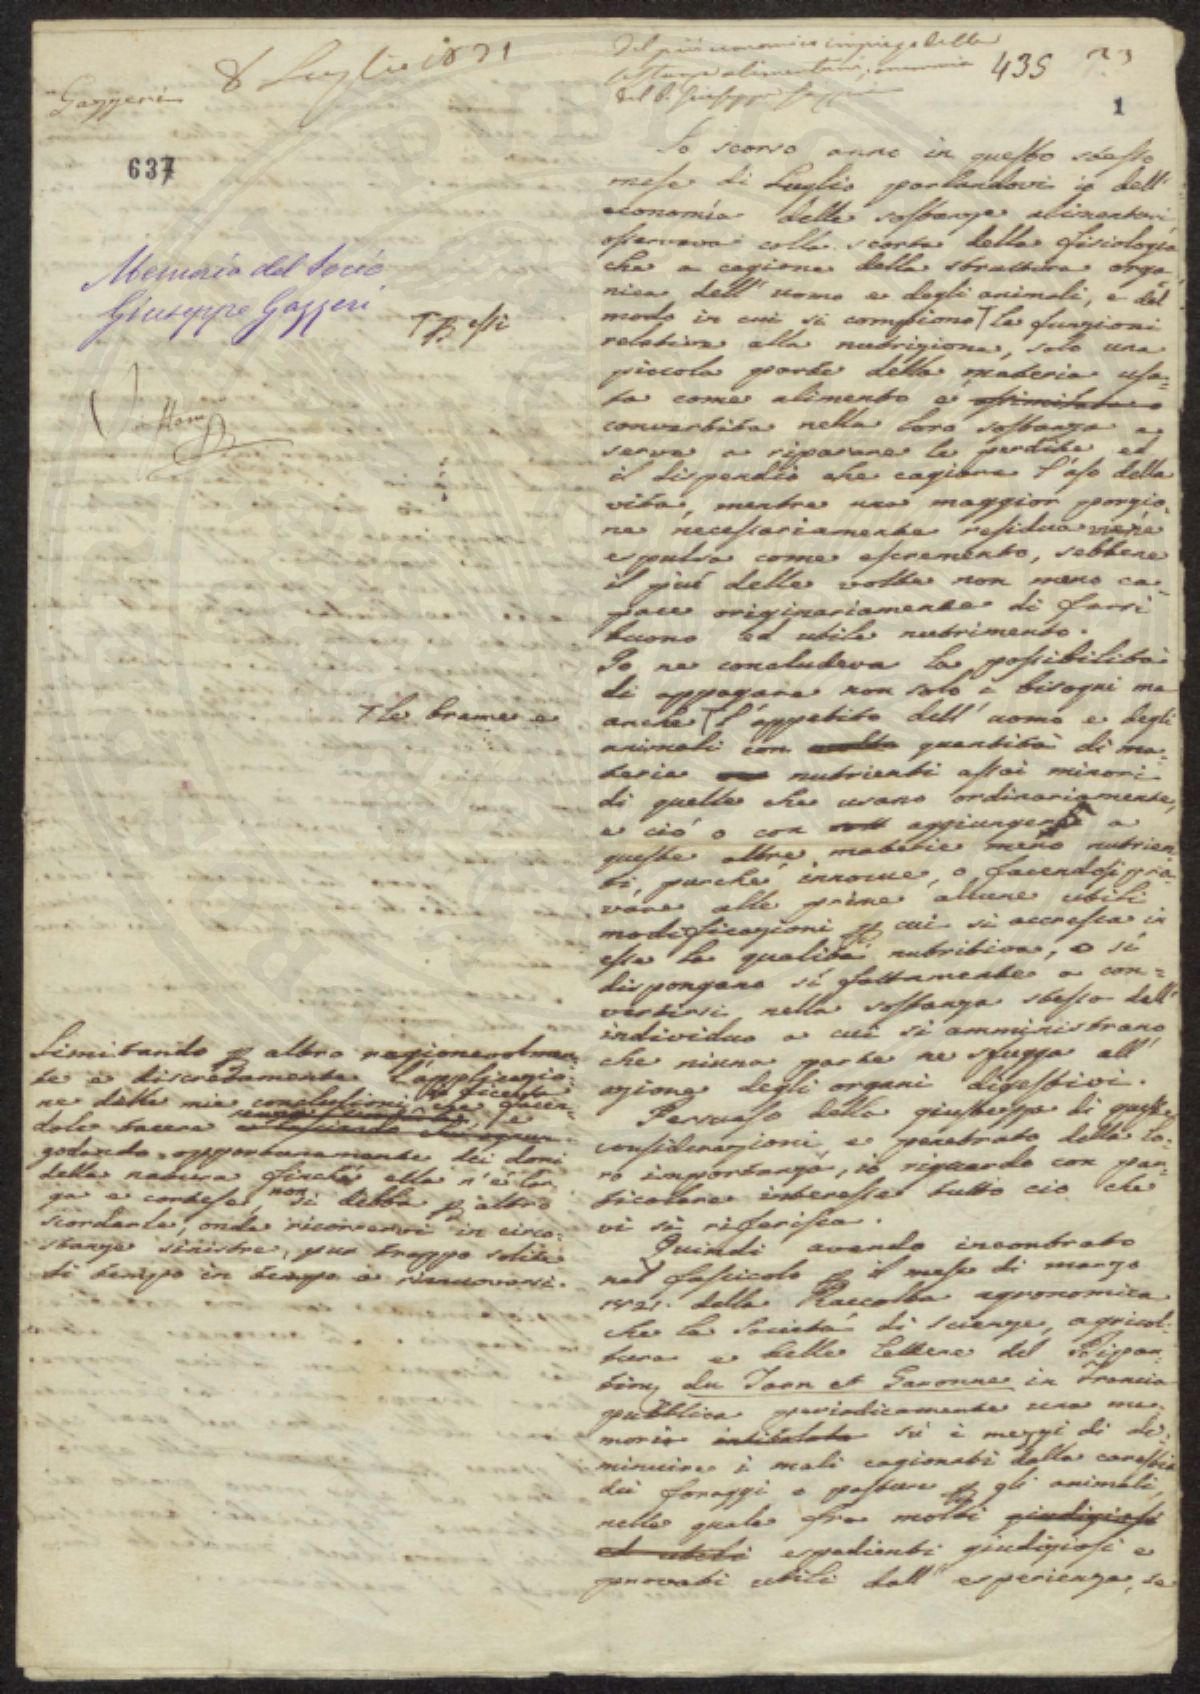 8 Luglio 1821
Gazzeri
637
Memoria del Socio
Giuseppe Gazzeri
Del più economico impiego delle
sostanze alimentari, memoria
del S. Giuseppe Gazzeri
435
1
Lo scorso anno in questo stesso
mese di Luglio parlandovi io dell'
economia delle sostanze alimentari
osservava colla scorta della fisiologia
che a cagione della struttura orga
nica dell'uomo e degli animali, e del
modo in cui si compiono le funzioni
relative alla nutrizione, solo una
piccola parte della materia usa-
ta come alimento è assimilata e
convertita nella loro sostanza e
serve a riparare le perdite ed
il dispendio che cagiona l'uso della
vita, mentre una maggior porzio
ne necessariamente residua viene
espulsa come escremento, sebbene
il più delle volte non meno ca
pace originariamente di farsi
buono ed utile nutrimento.
Io ne concludeva la possibilità
di appagare non solo i bisogni ma
anche l'appetito dell'uomo e degli
animali con molta quantità di ma-
terie nutrienti assai minori
di quelle che usano ordinariamente,
e ciò o con aggiungere a
queste altre materie meno nutrien
ti, purché innocue, o facendo pro-
vare alle prime alcune utili
modificazioni p cui si accresca in
esse la qualità nutritiva, e si
dispongano sì fattamente a con-
vertirsi nella sostanza stessa dell'
individuo a cui si amministrano
che niuna parte ne sfugga all'
azione degli organi digestivi.
Persuaso della giustezza di queste
considerazioni, e penetrato della lo-
ro importanza, io riguardo con par
ticolare interesse tutto ciò che
vi si riferisca.
Quindi avendo incontrato
nel fascicolo p il mese di marzo
1821. della Raccolta agronomica
che la Società di scienze, agricol-
tura e belle lettere del Dipar-
tim du Tarn et Garonne in Francia
pubblica periodicamente una me-
moria intitolata su i mezzi di di-
minuire i mali cagionati dalla carestia
dei foraggi e pasture p gli animali,
nella quale fra molti giudiziosi
ed utili espedienti giudiziosi e
provati utili dall'esperienza, se
T p essi
T le brame e
Limitando p altro ragionevolmen-
te e discretamente l'applicazio-
ne delle mie conclusioni
godendo opportunamente dei doni
della natura finché ella n'è lar-
ga e cortese, non si debba p altro
scordarle, onde ricorrervi in circo-
stanze sinistre, pur troppo solite
di tempo in tempo a rinnovarsi.